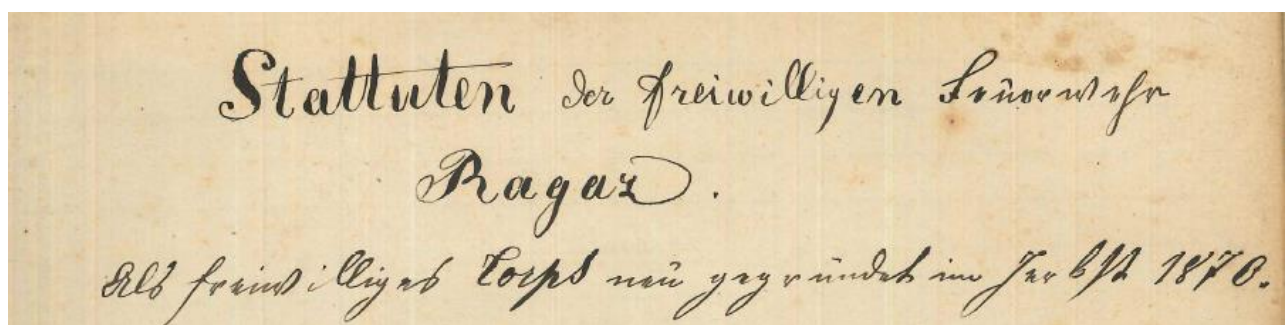 Stattuten der freiwilligen Feuerwehr
Ragaz.
Als freiwilliges Corps neu gegründet im Herbst 1870.